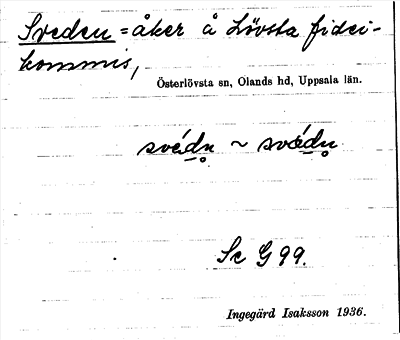 Sveden = åker å Lövsta fidei-
kommis,
Österlövsta sn, Olands hd, Uppsala län.
svédn̥ ~ svǽdn̥
Sc G 99.
Ingegärd Isaksson 1936.